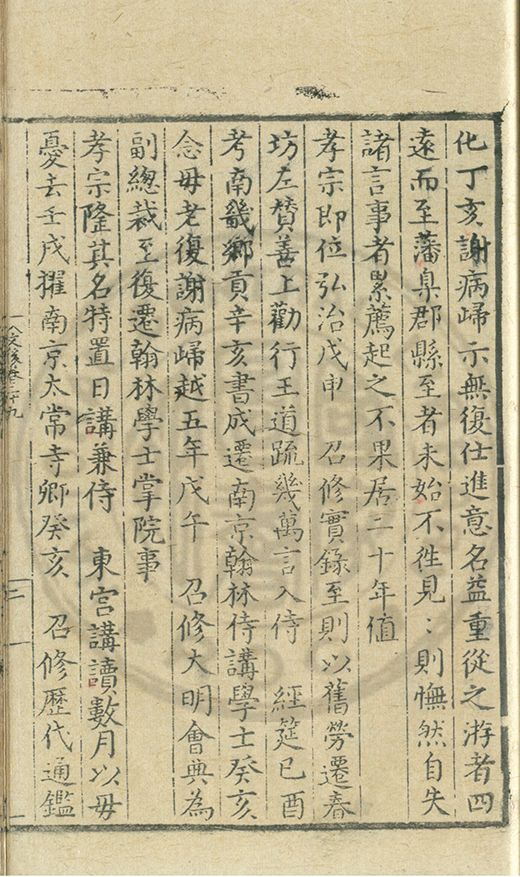 化丁亥謝病歸示無復仕進意名益重從之游者四
遠而至藩臬郡縣至者未始不徃見：則憮然自失
諸言事者累薦起之不果居二十年值
孝宗即位弘治戊申　召修實錄至則以舊勞遷春
坊左賛善上勸行王道疏幾萬言入侍　經筵已酉
考南畿鄉貢辛亥書成遷南京翰林侍講學士癸亥
念毋老復謝病歸越五年戊午　召修大明會典為
副總裁至復遷翰林學士掌院事
孝宗隆其名特置日講兼侍　東宮講讀數月以毋
憂去壬戌擢南京太常寺卿癸亥　召修歷代通鑑